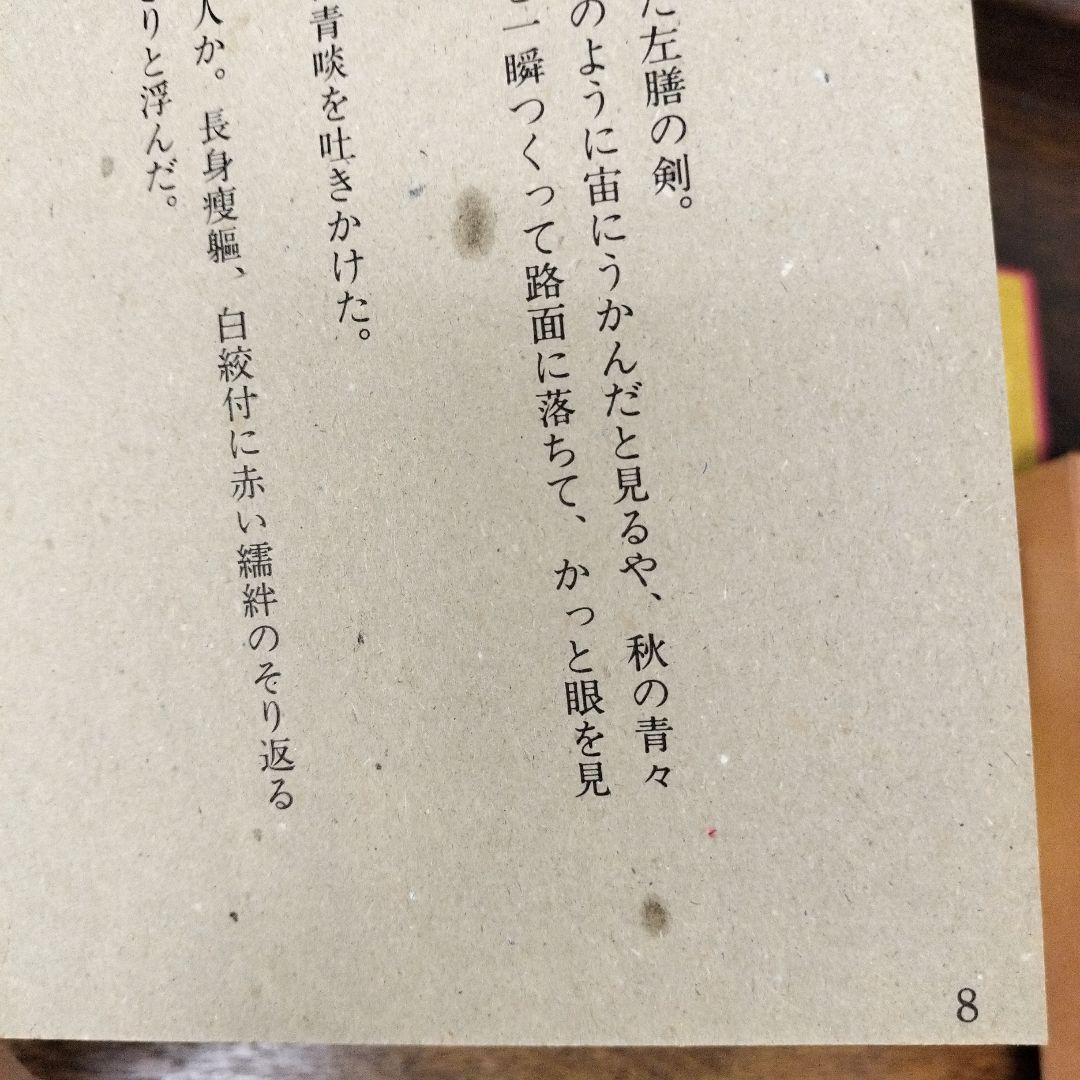 た左膳の剣。
のように宙にうかんだと見るや、秋の青々
一瞬つくって路面に落ちて、かっと眼を見
青啖を吐きかけた。
人か。長身痩軀、白絞付に赤い繻絆のそり返る
りと浮んだ。
8